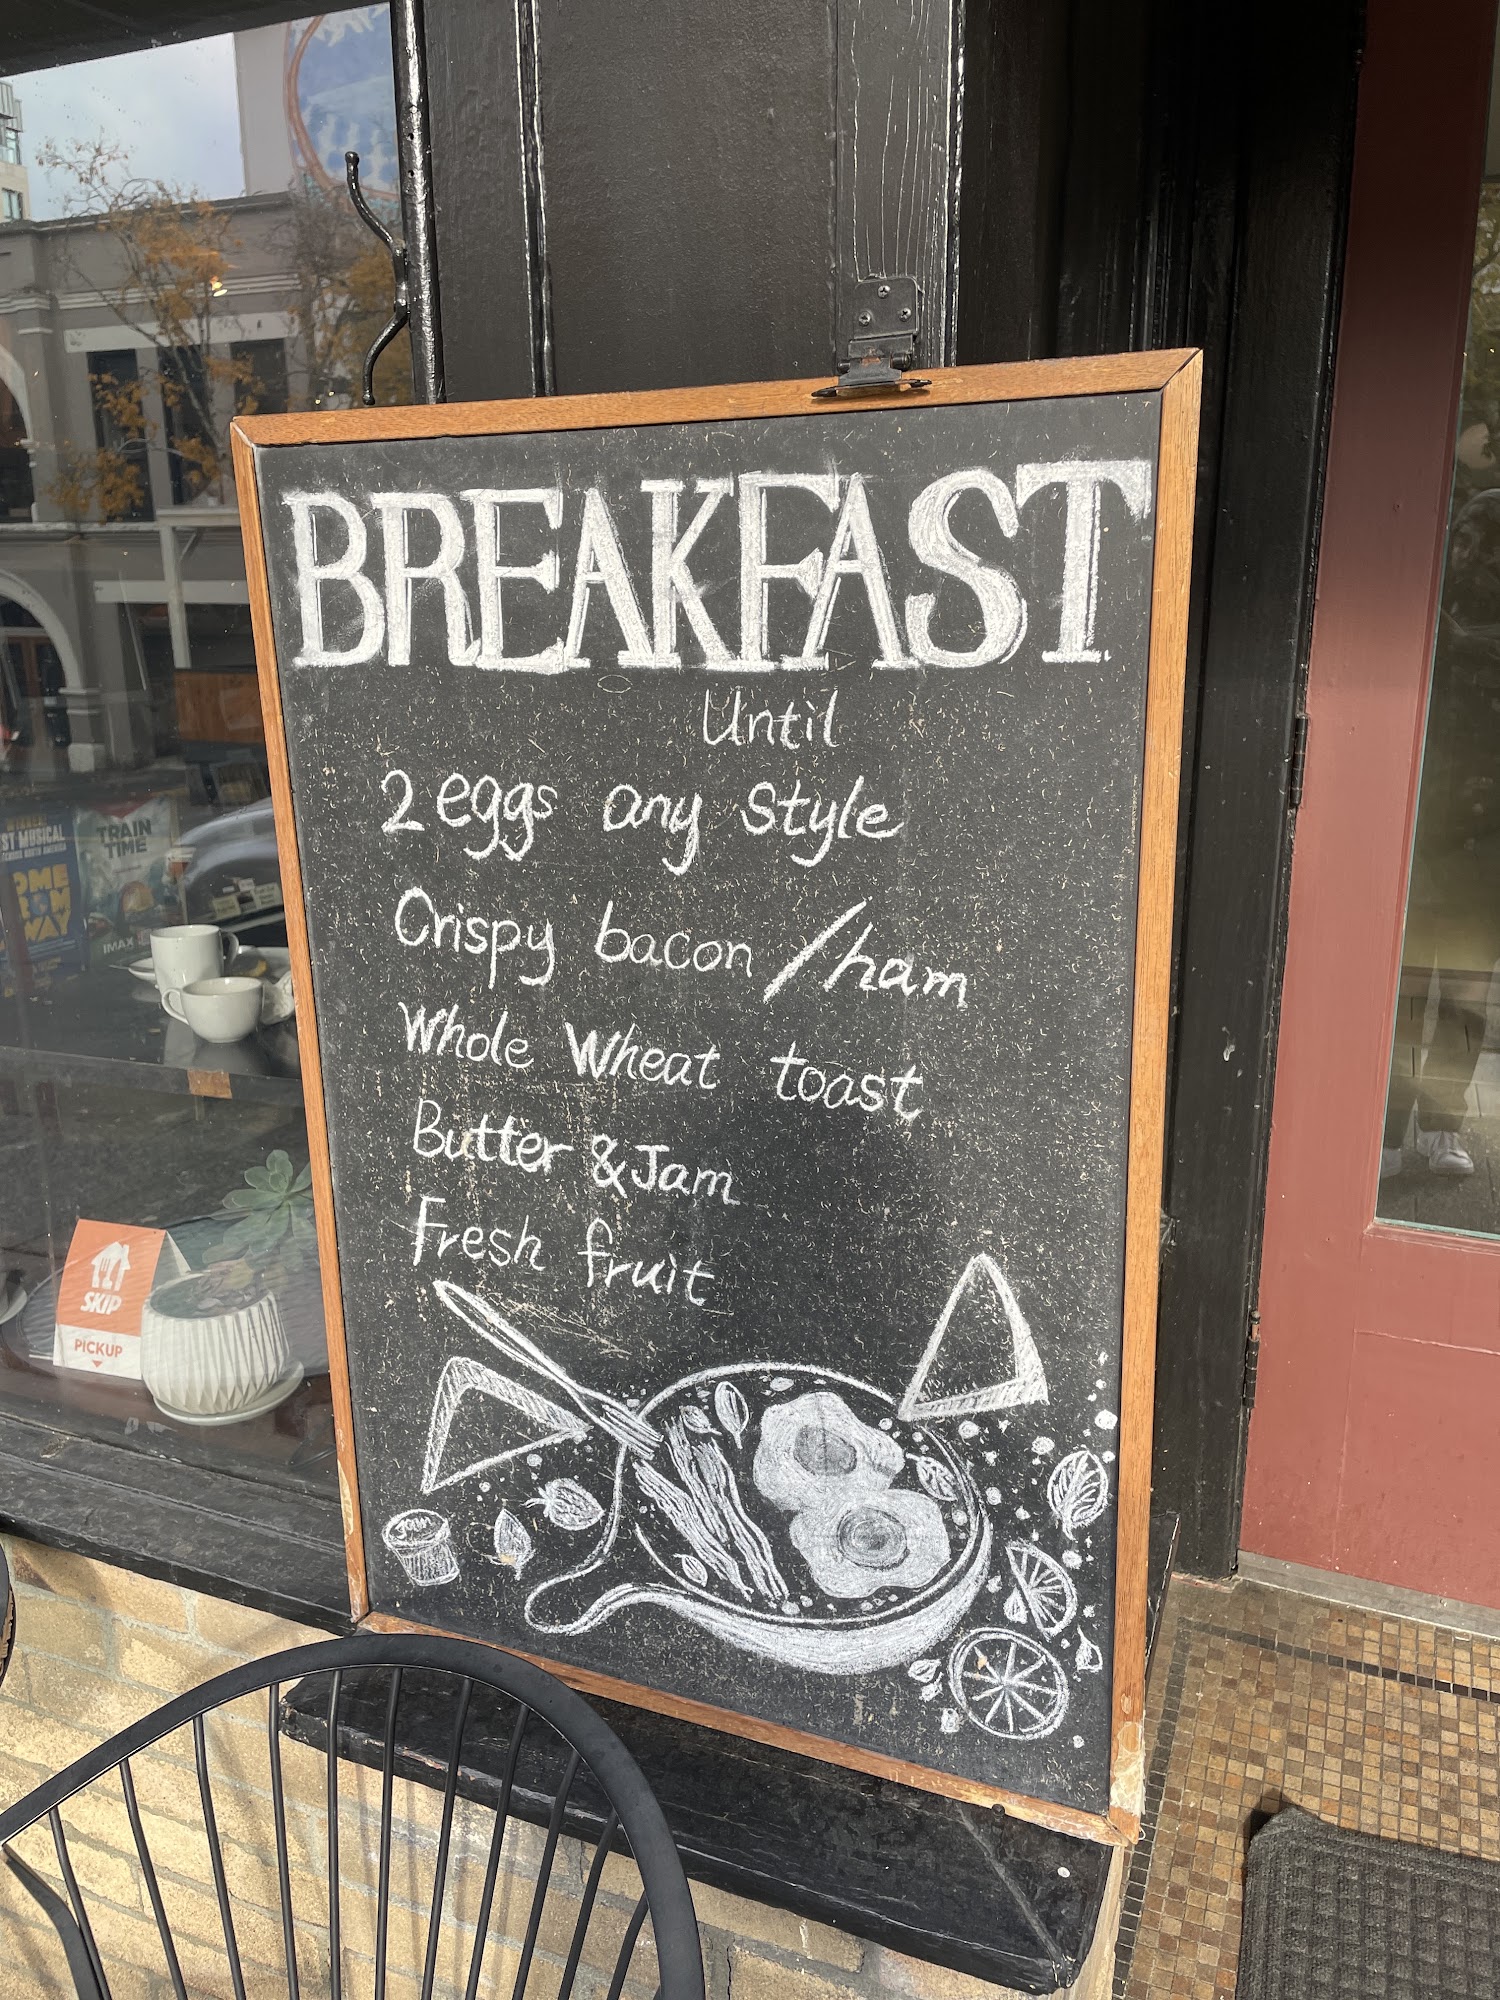 BREAKFAST
Until
2 eggs any Style
Crispy bacon / ham
Whole Wheat toast
Butter & Jam
Fresh fruit
Jam
ST MUSICAL
TRAIN
TIME
IMAX
SKIP
PICKUP